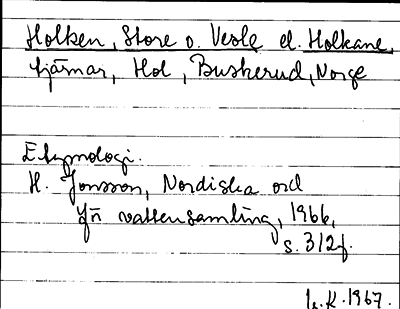 Holken, Store o. Vesle el. Holkane,
tjärnar, Hol, Buskerud, Norge
Etymologi.
H. Jonsson, Nordiska ord
för vattensamling, 1966,
s. 312f.
K. 1967.